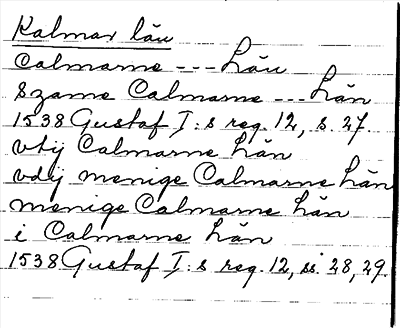 Kalmar län
Calmarne --- Län
Szame Calmarne --- Län
1538 Gustaf I:s reg. 12, s. 27.
vtij Calmarne Län
vdij menige Calmarne Län
menige Calmarne Län
i Calmarne Län
1538 Gustaf I:s reg. 12, ss. 28, 29.